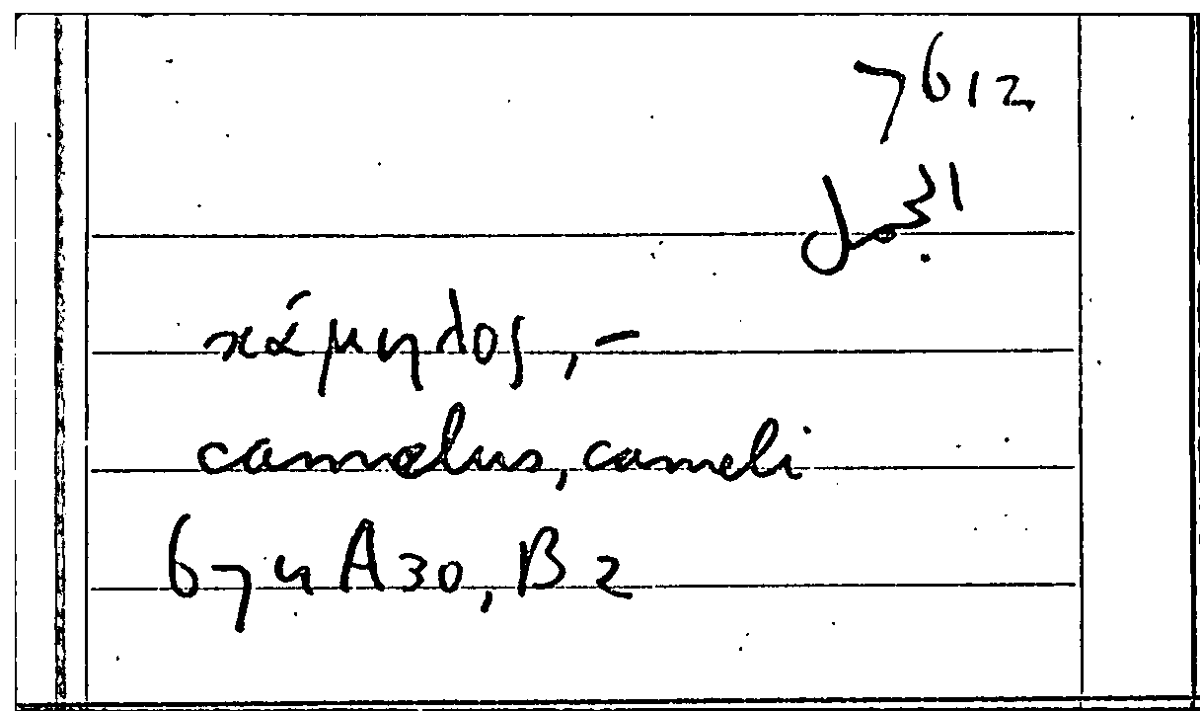 7612
جمل
κάμηλος, -
camelus, cameli
674 A30, B2